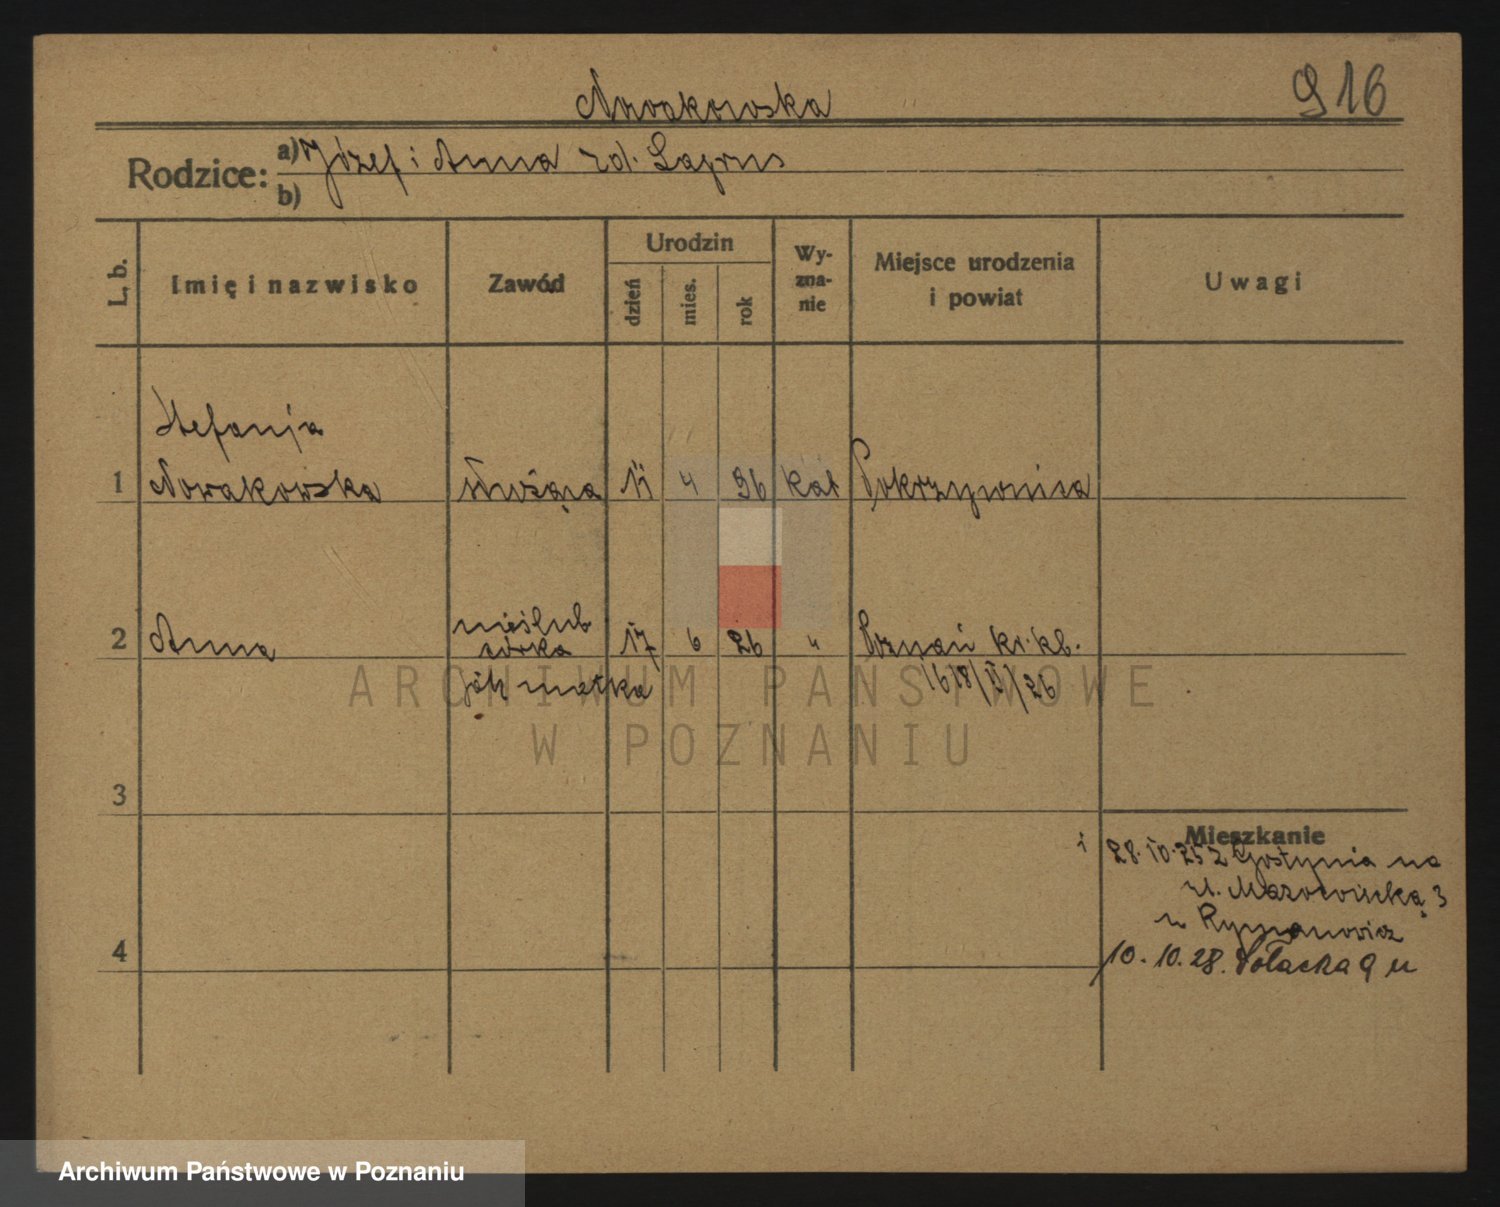 Nowakowska
916
Rodzice: a) Józef i Anna zd. Laprus
b)
L. b.
Imię i nazwisko
Zawód
Urodzin
dzień
mies.
rok
Wy-
zna-
nie
Miejsce urodzenia
i powiat
Uwagi
Stefanja
1 Nowakowska służąca 11 4 96 kat Pokrzywnica
nieślub
2 Anna córka 17 6 26 " Poznań kr. kb.
jak matka 1618/IV/26
3
Mieszkanie
28.10.25 z Gostynia na
ul. Mazowiecką 3
u Rymanowicz
4
10.10.28. Połacka 9 u
ARCHIWUM PAŃSTWOWE
W POZNANIU
Archiwum Państwowe w Poznaniu